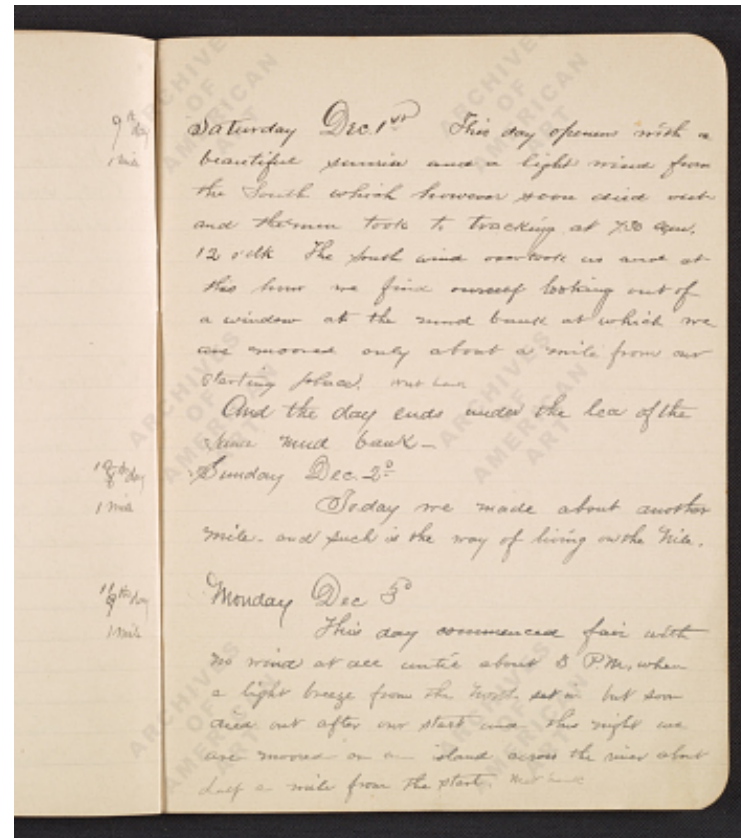 9th day
1 mile
Saturday Dec. 1st This day opens with a
beautiful sunrise and a light wind from
the South which however soon died out
and the men took to tracking at 7.30 a.m.
12 o'clk The South wind overtook us and at
this hour we find ourself looking out of
a window at the mud bank at which we
are moored only about a mile from our
starting place.
And the day ends under the lee of the
same mud bank—
day
1 mile
Sunday Dec. 2d
Today we made about another
mile. and such is the way of living on the Nile.
day
1 mile
Monday Dec 3d
This day commenced fair with
no wind at all until about 3 P.M. when
a light breeze from the North set in but soon
died out after our start and this night we
are moored on an island across the river about
half a mile from the start.
ARCHIVES
OF
AMERICAN
ART
ARCHIVES
OF
AMERICAN
ART
ARCHIVES
OF
AMERICAN
ART
ARCHIVES
OF
AMERICAN
ART
ARCHIVES
OF
AMERICAN
ART
ARCHIVES
OF
AMERICAN
ART